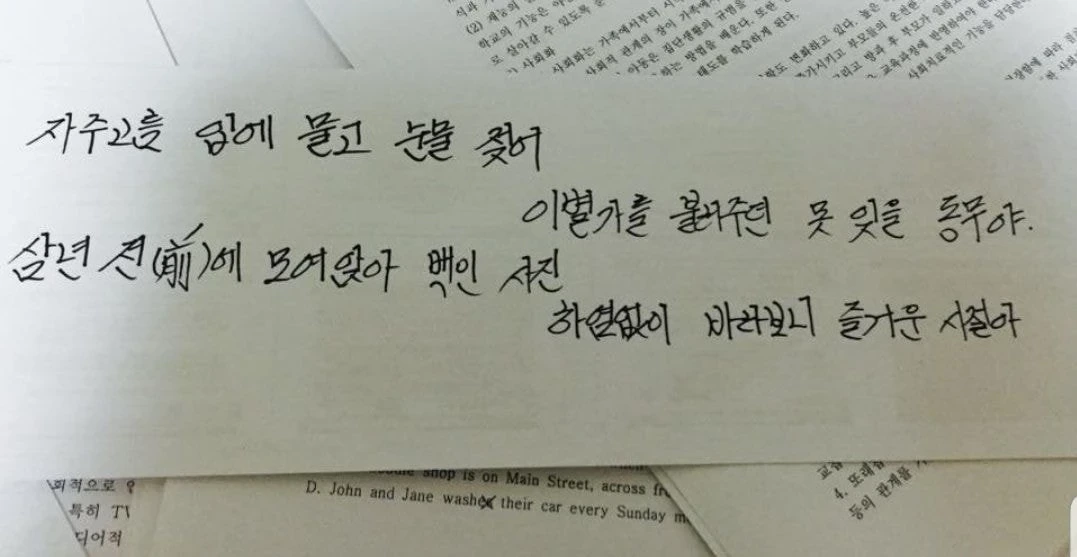 학교의 기능은
모 살아갈 수 있도록
사회화
사회화는 가족에서부터
사회적 관계의 장이 가족에서
아동은 집단생활의 규범을
하는 방법을 배운다. 또한
태도를 학습하게 된다.
도 변화하고 있다. 높은
가시키고 부모들의 온전한
그리고 방과 후 부모가
교육과정에 반영하여야
사회치료적인 기능을
자주고름 입에 물고 눈물 젖어
이별가를 불러주던 못 잊을 동무야.
삼년 전(前)에 모여앉아 백인 사진
하염없이 바라보니 즐거운 시절아
shop is on Main Street, across
D. John and Jane washes their car every Sunday
회적으로
특히 TV
디어적
4. 또래
동의 관계를